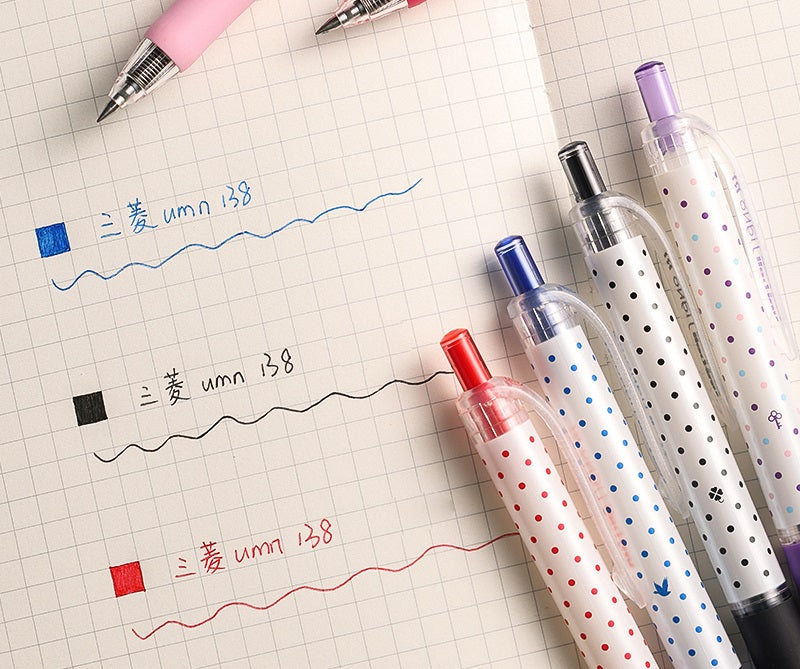 三菱 umn 138
三菱 umn 138
三菱 umn 138